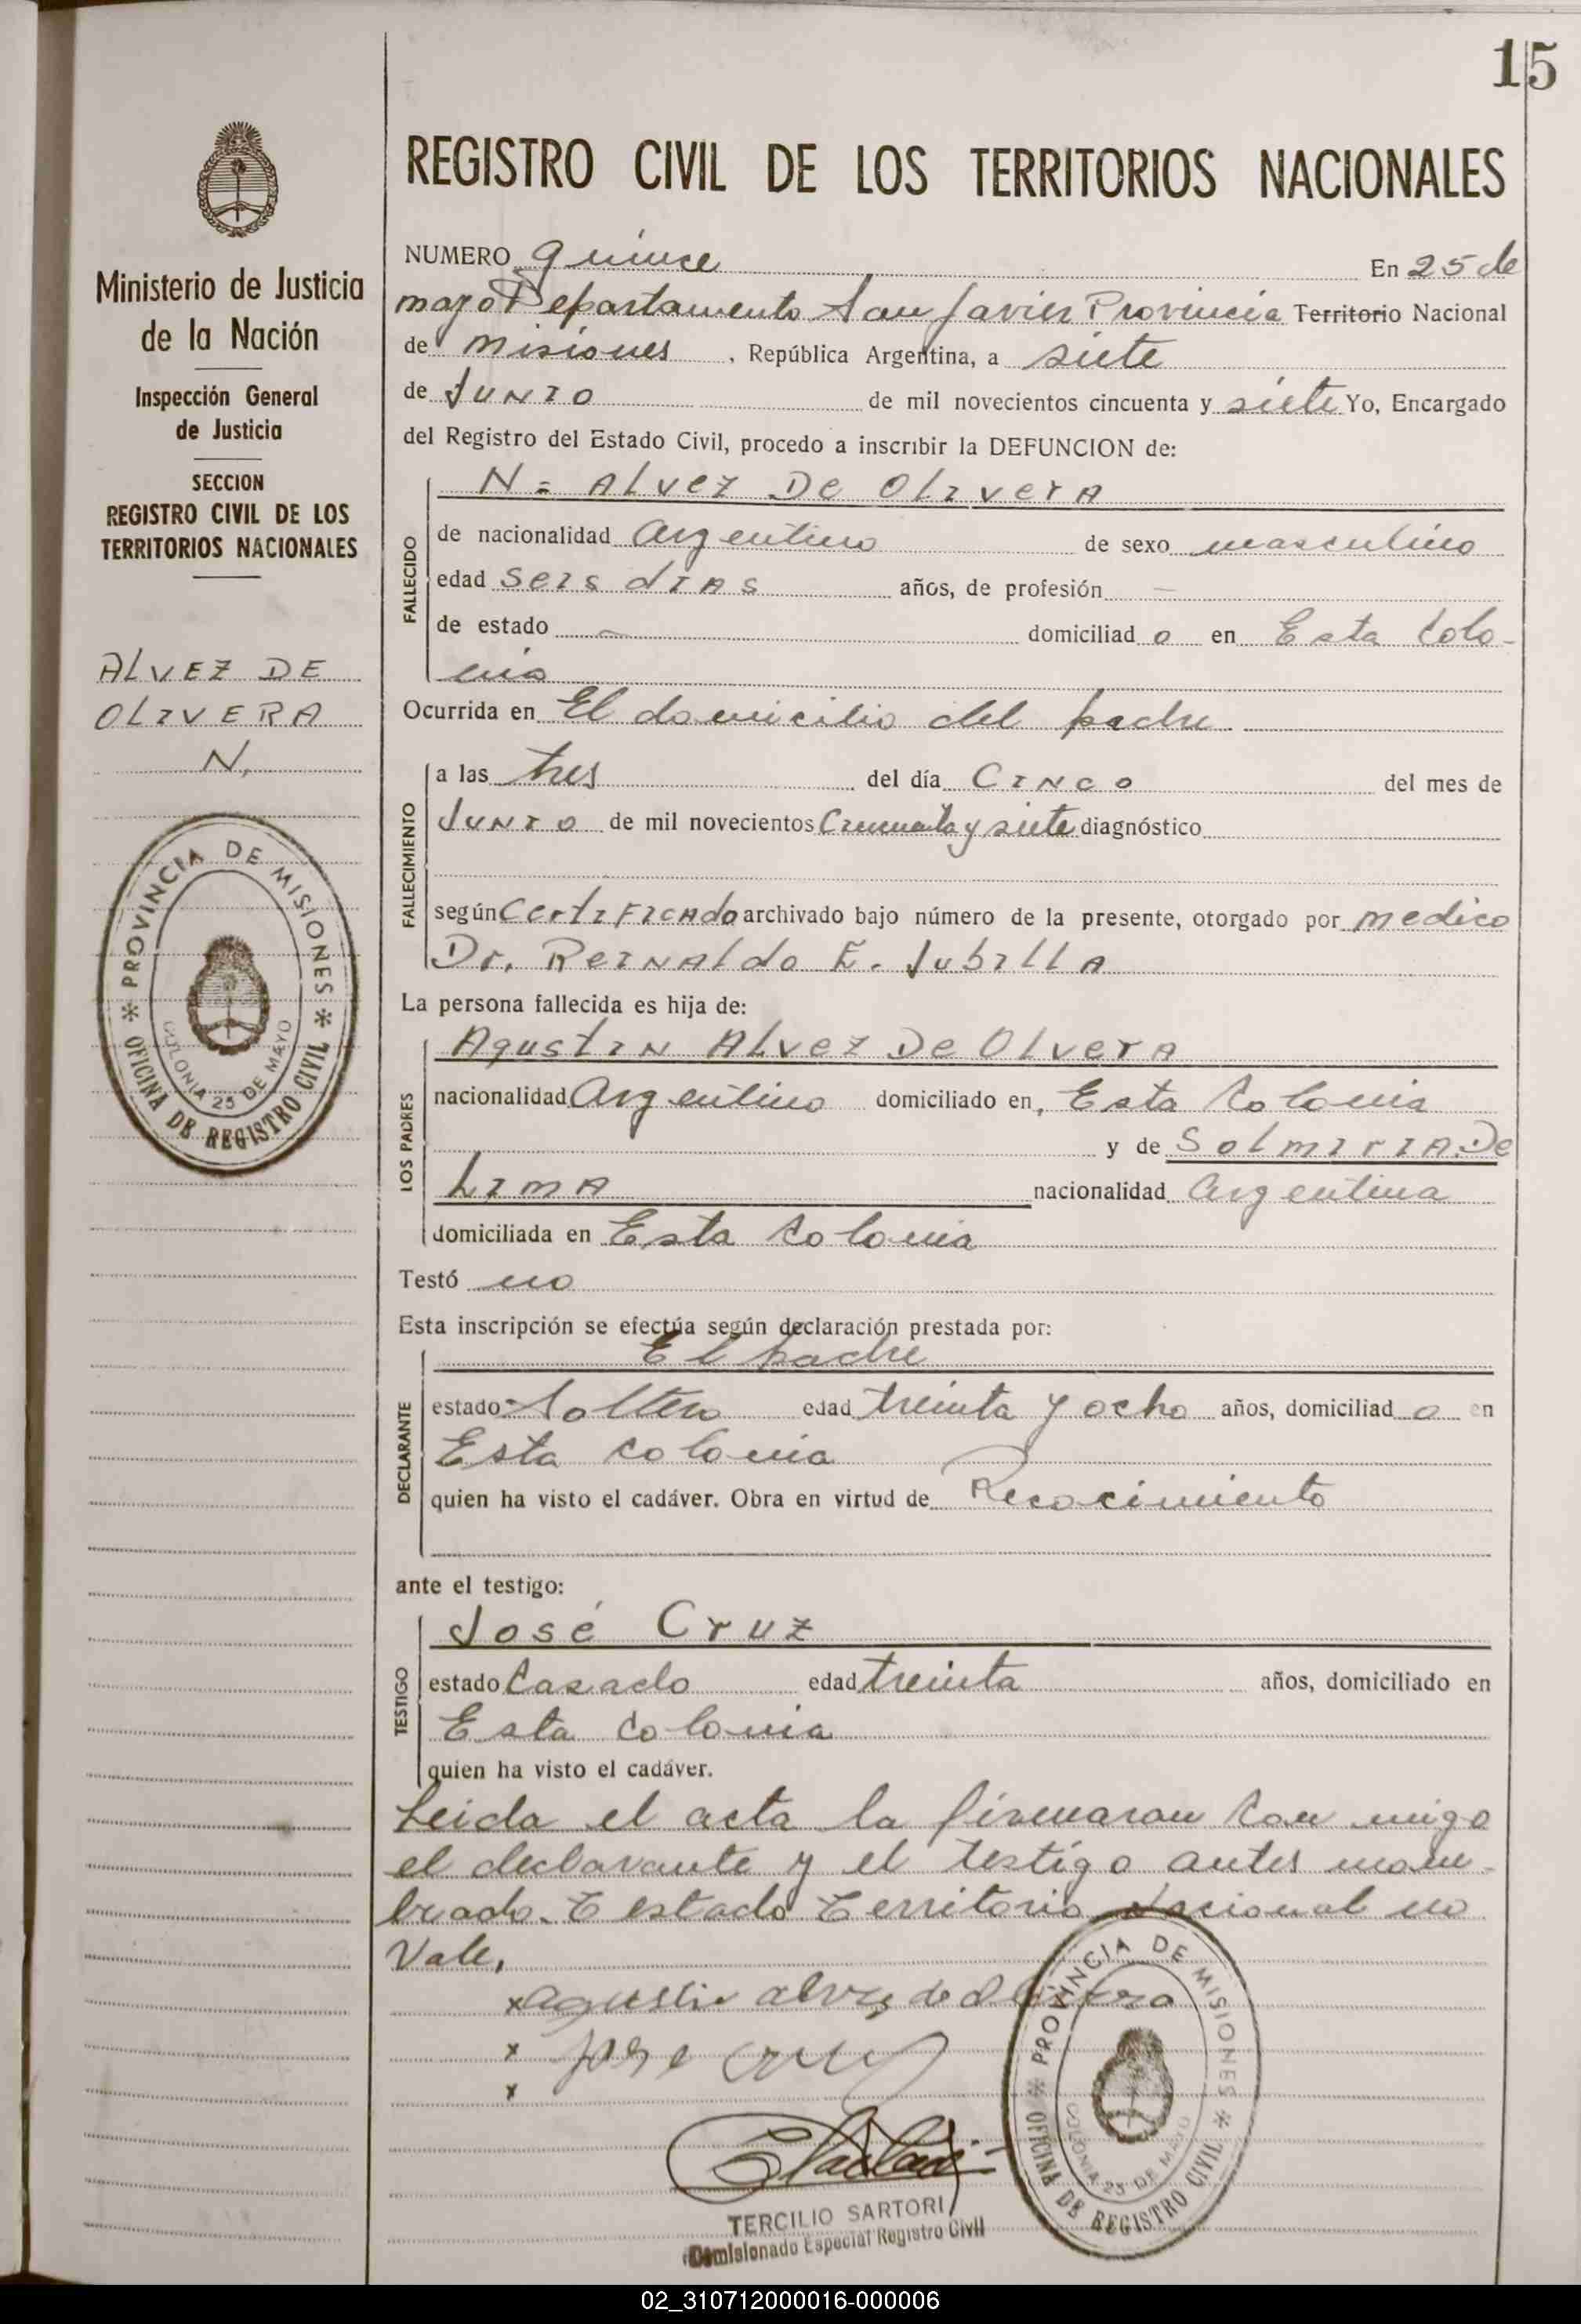 15
REGISTRO CIVIL DE LOS TERRITORIOS NACIONALES
Ministerio de Justicia
de la Nación
Inspección General
de Justicia
SECCION
REGISTRO CIVIL DE LOS
TERRITORIOS NACIONALES
ALVEZ DE
OLIVERA
N.
PROVINCIA DE MISIONES * OFICINA DE REGISTRO CIVIL *
COLONIA 25 DE MAYO
NUMERO quince En 25 de
mayo Departamento San Javier Provincia Territorio Nacional
de misiones , República Argentina, a siete
de JUNIO de mil novecientos cincuenta y siete Yo, Encargado
del Registro del Estado Civil, procedo a inscribir la DEFUNCION de:
FALLECIDO
N= Alvez De Olivera
de nacionalidad argentino de sexo masculino
edad seis dias años, de profesión —
de estado — domiciliad o en Esta Colo-
nia
Ocurrida en El domicilio del padre
FALLECIMIENTO
a las tres del día CINCO del mes de
JUNIO de mil novecientos Cincuenta y siete diagnóstico
según Certificado archivado bajo número de la presente, otorgado por medico
Dr. Reinaldo E. Jubilla
La persona fallecida es hija de:
LOS PADRES
Agustin Alvez De Olvera
nacionalidad Argentino domiciliado en, Esta Colonia
y de Solmiria De
Lima nacionalidad argentina
domiciliada en Esta Colonia
Testó no
Esta inscripción se efectúa según declaración prestada por:
DECLARANTE
El padre
estado Soltero edad treinta y ocho años, domiciliad o en
Esta colonia
quien ha visto el cadáver. Obra en virtud de Recocimiento
ante el testigo:
TESTIGO
José Cruz
estado Casado edad treinta años, domiciliado en
Esta Colonia
quien ha visto el cadáver.
Leida el acta la firmaron con migo
el declarante y el testigo antes nom-
brado. Testado Territorio Nacional no
Vale,
x agustin alvez de olivera
x jose cruz
x
TERCILIO SARTORI
Comisionado Especial Registro Civil
PROVINCIA DE MISIONES * OFICINA DE REGISTRO CIVIL *
COLONIA 25 DE MAYO
02_310712000016-000006